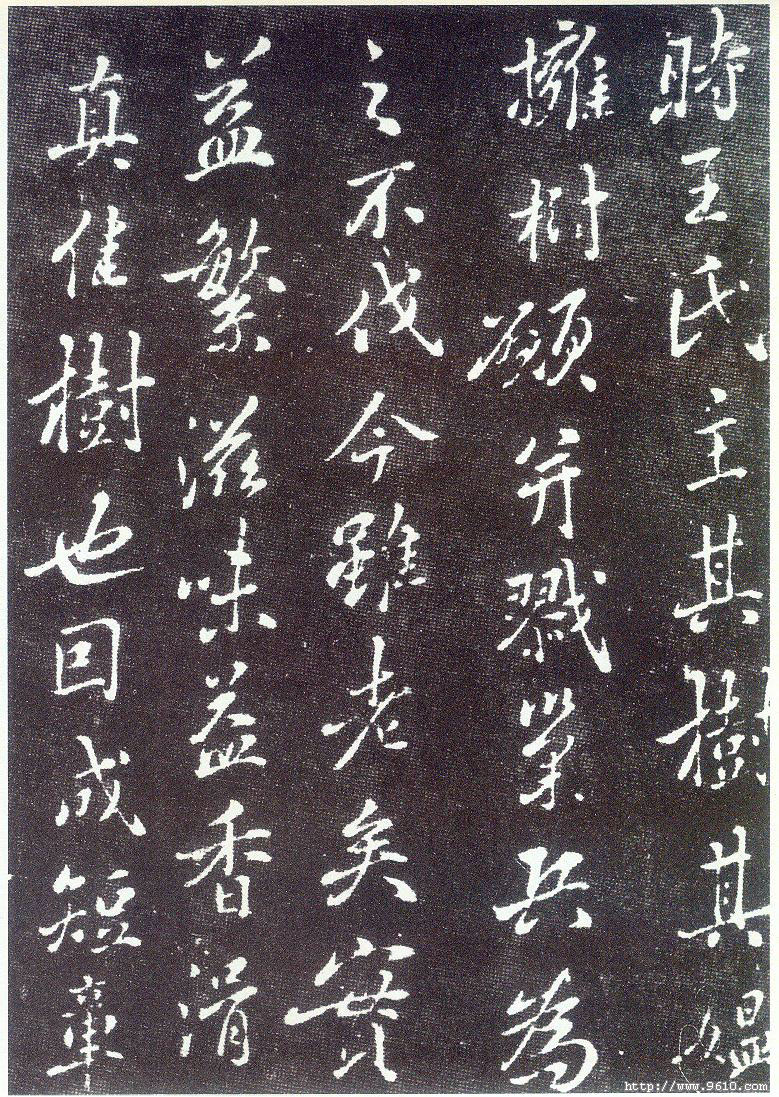 時王氏主其樹其媪
擁樹願并戮巢兵為
之不伐今雖老矣實
益繁滋味益香滑
真佳樹也回成短章
http://www.9610.com